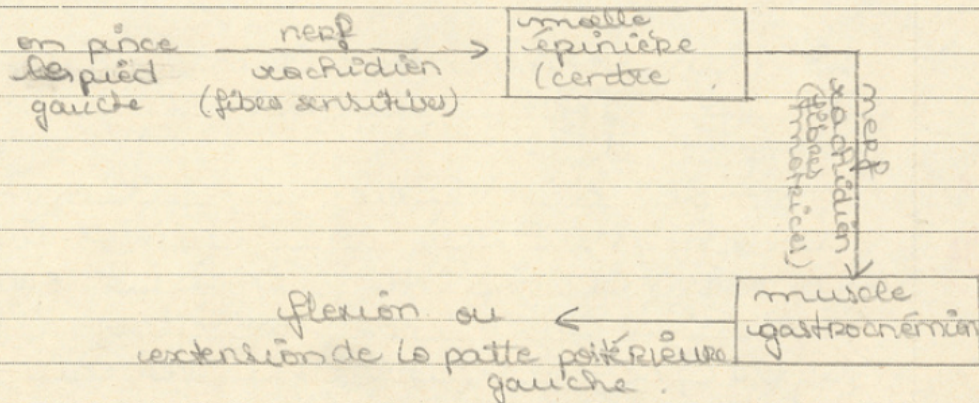 on pince
les pied
gauche
nerf
rachidien
(fibes sensitives)
moelle
épinière
(centre
nerf
rachidien
(fibres
motrices)
muscle
gastrocnémien
flexion ou
extension de la patte postérieure
gauche.